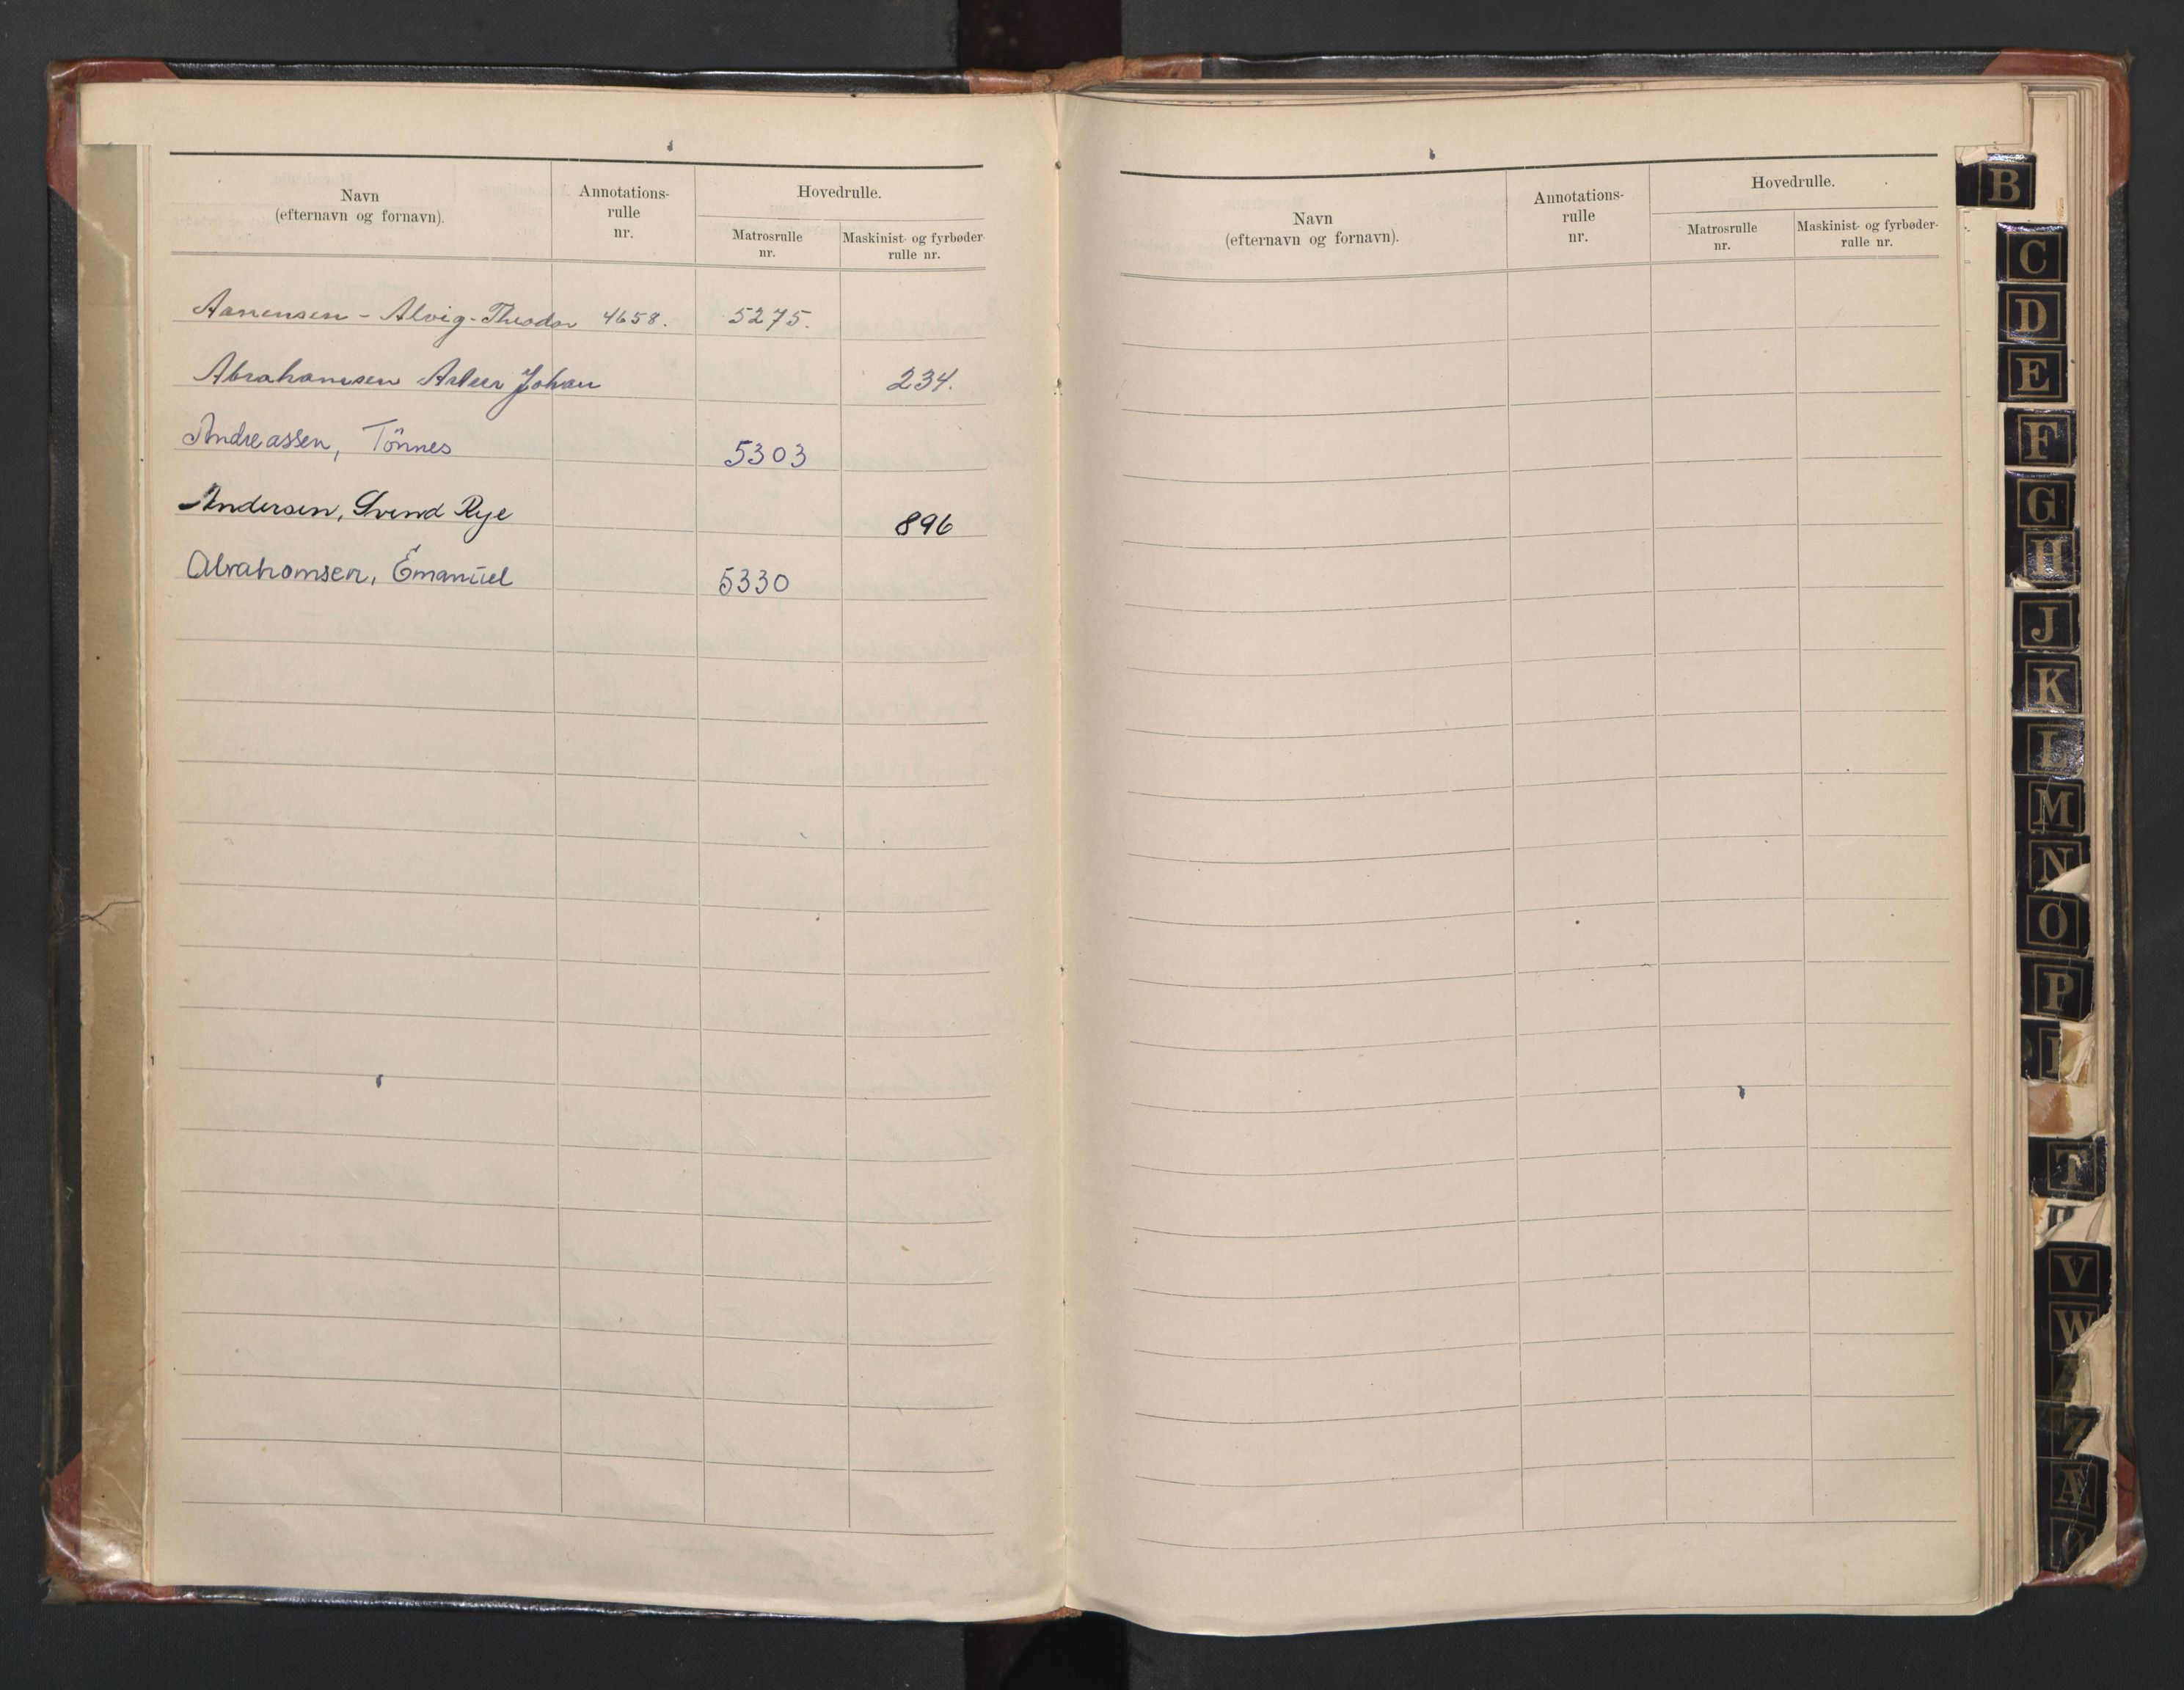 Navn
(efternavn og fornavn).
Annotations-
rulle
nr.
Hovedrulle.
Matrosrulle
nr.
Maskinist- og fyrbøder-
rulle nr.
Aanensen - Alvig - Theodor 4658. 5275.
Abrahamsen Johan 234.
Andreassen, Tönnes 5303
Andersen, Svend Rye 896
Abrahamsen, Emanuel 5330
Navn
(efternavn og fornavn).
Annotations-
rulle
nr.
Hovedrulle.
Matrosrulle
nr.
Maskinist- og fyrbøder-
rulle nr.
B
C
D
E
F
G
H
J
K
L
M
N
O
P
T
V
W
Z
Æ